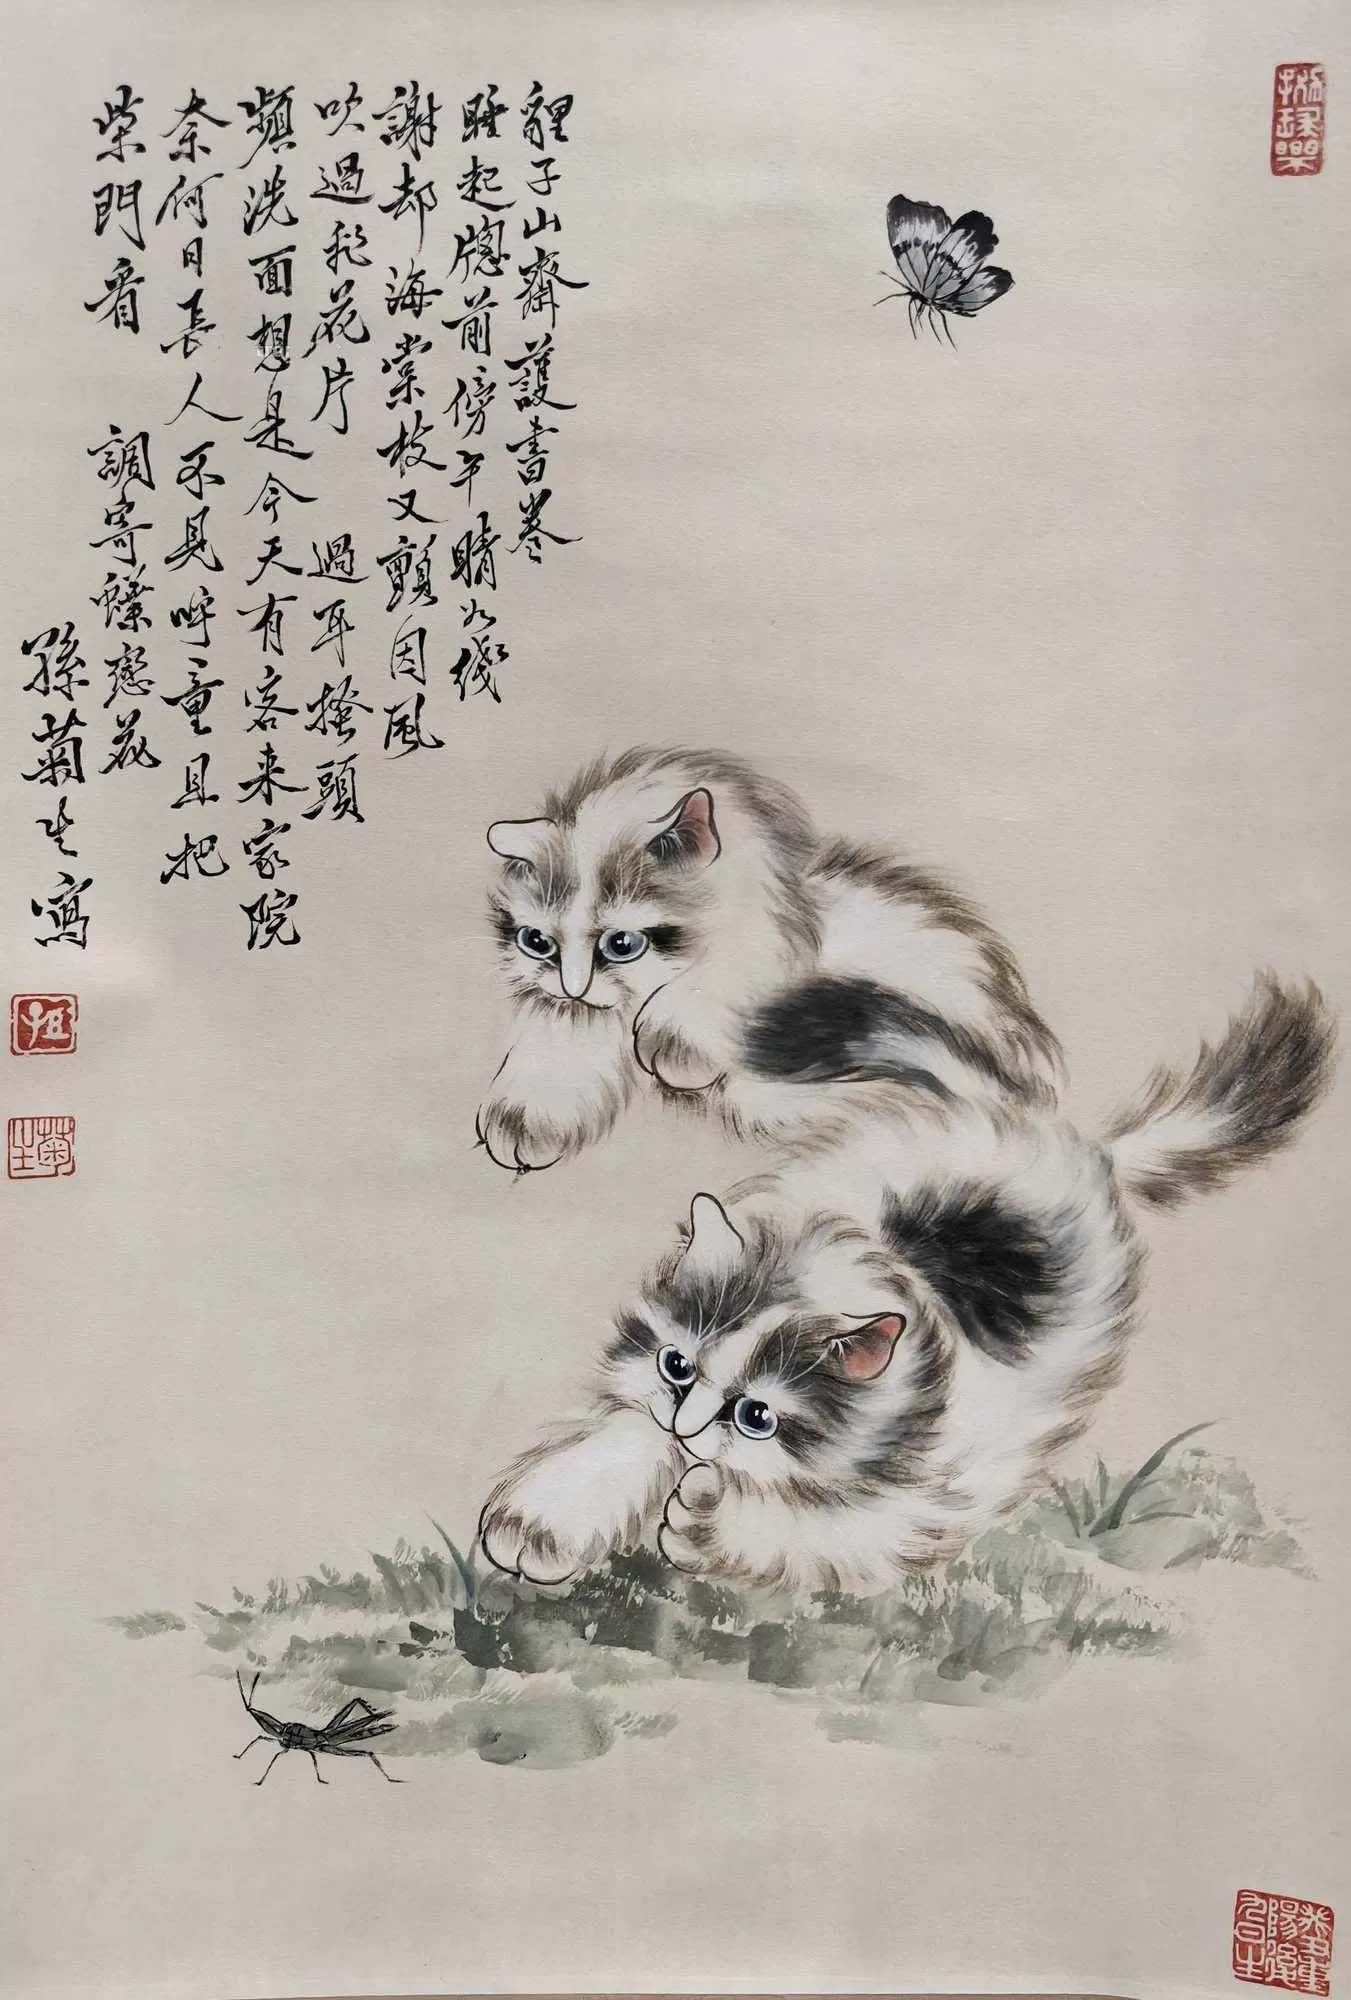 貍子山齋護書卷
睡起牕前傍午睛如綫
謝却海棠枝又顫因風
吹過飛花片 過耳搔頭
頻洗面想是今天有客来家院
奈何日長人不見呼童且把
柴門看 調寄蝶戀花
孫菊生寫
孫
菊生
癸丑重陽後九日生